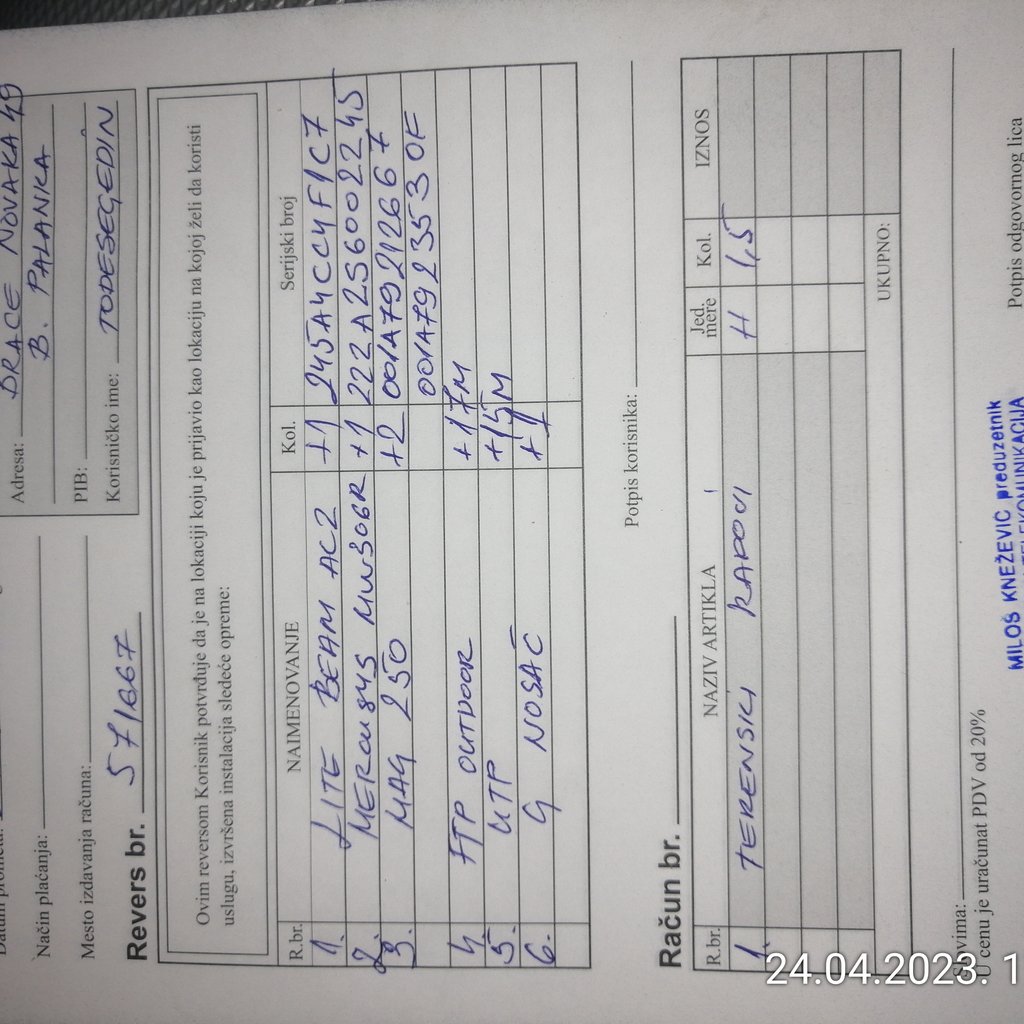 Adresa: BRAĆE NOVAKA 49
B. PALANKA
Način plaćanja:
PIB:
Mesto izdavanja računa:
Korisničko ime: TODESEGEDIN
Revers br. 571667
Ovim reversom Korisnik potvrđuje da je na lokaciji koju je prijavio kao lokaciju na kojoj želi da koristi
uslugu, izvršena instalacija sledeće opreme:
R.br. NAIMENOVANJE Kol. Serijski broj
1. LITE BEAM AC2 +1 245A4CC4F1C7
2. MERCUSYS MW306R +1 222A2S6002245
3. MAG 250 +2 001A79212667
001A7923530F
4 FTP OUTDOOR +17M
5. UTP +15M
6. G NOSAČ +1
Potpis korisnika:
Račun br.
R.br. NAZIV ARTIKLA Jed. mere Kol. IZNOS
1. TERENSKI RADOVI H 1,5
UKUPNO:
Slovima:
U cenu je uračunat PDV od 20%
MILOŠ KNEŽEVIĆ preduzetnik
TELEKOMUNIKACIJA
Potpis odgovornog lica
24.04.2023. 1